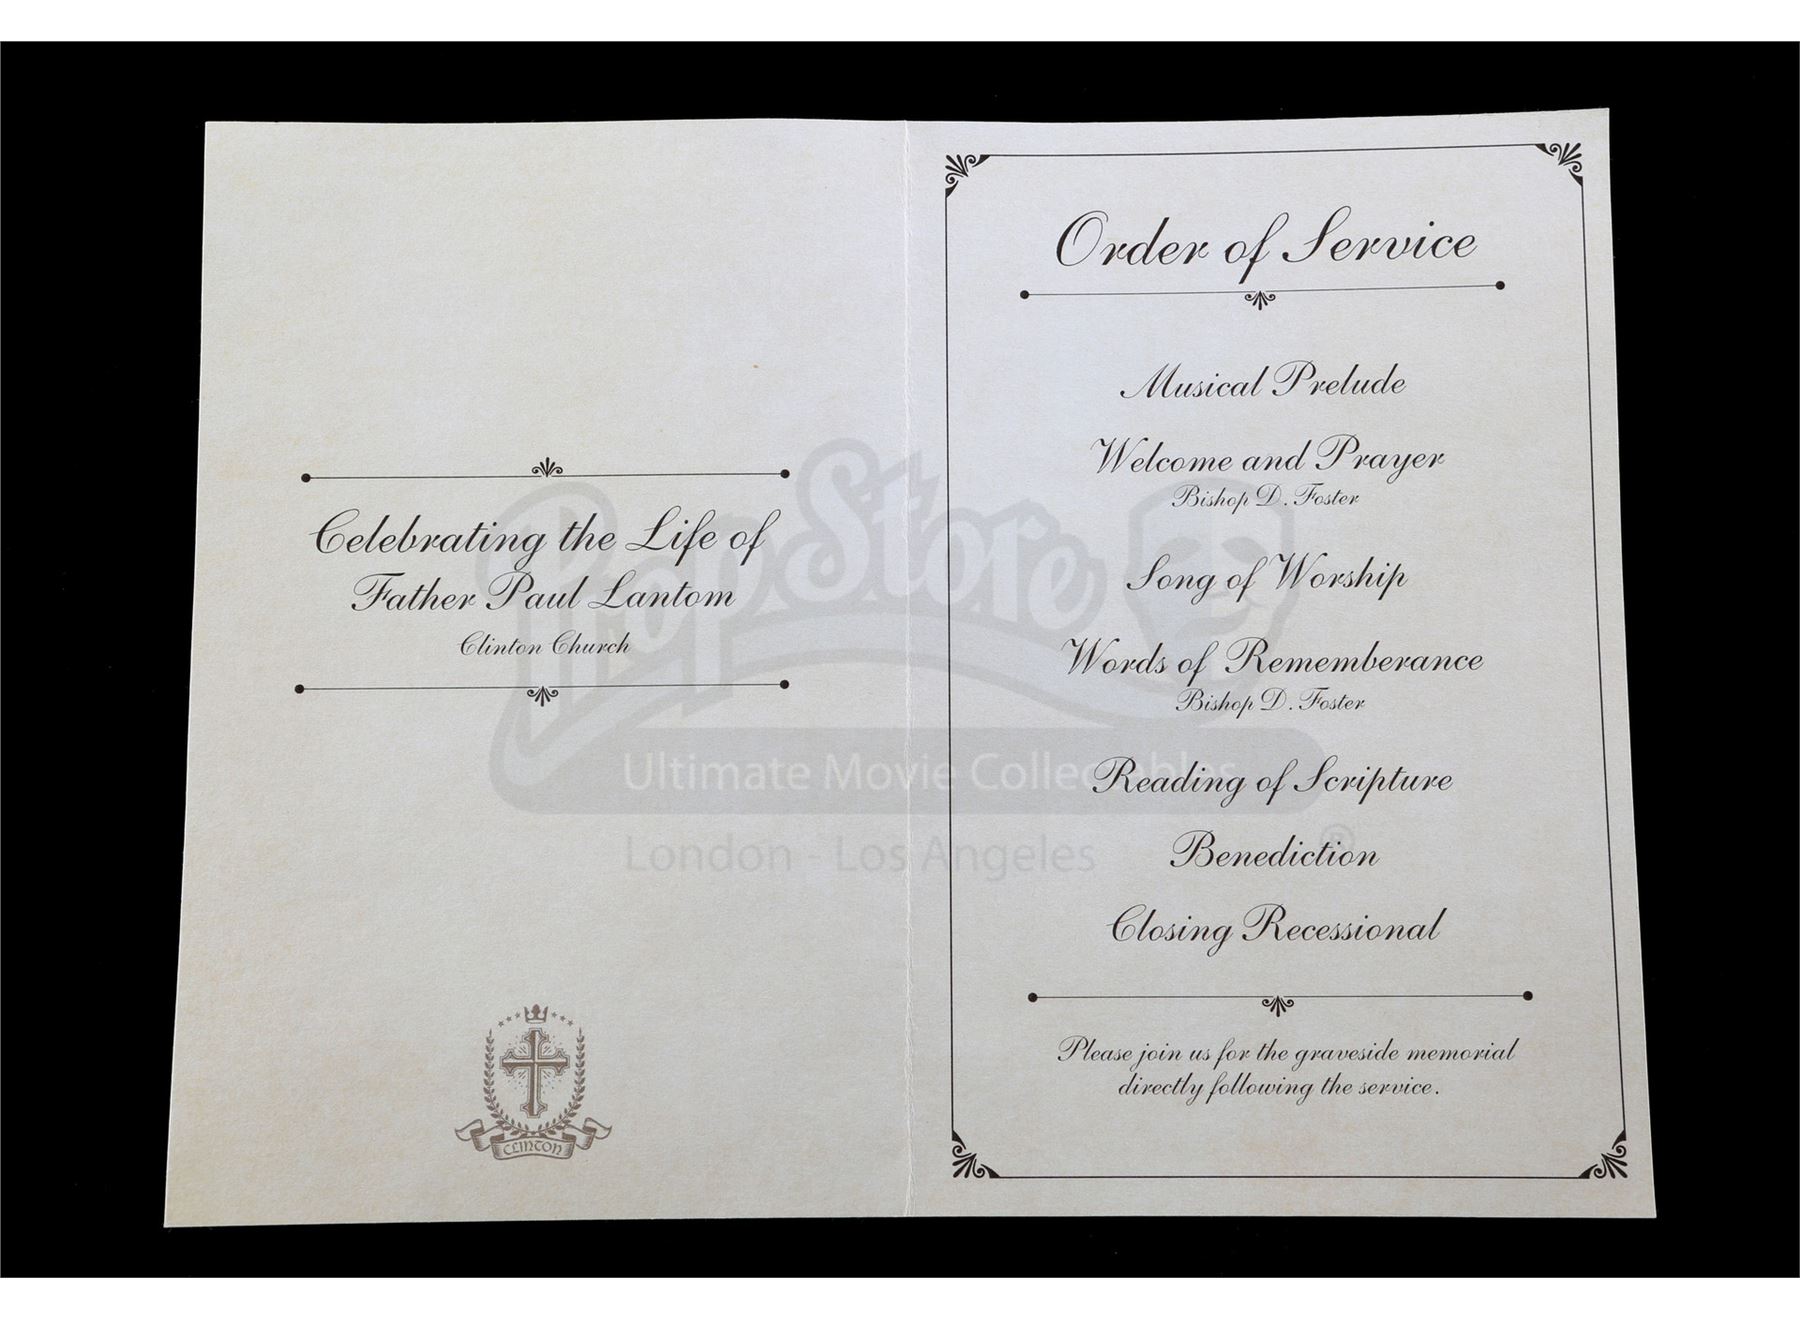 Celebrating the Life of
Father Paul Lantom
Clinton Church
CLINTON
Order of Service
Musical Prelude
Welcome and Prayer
Bishop D. Foster
Song of Worship
Words of Rememberance
Bishop D. Foster
Reading of Scripture
Benediction
Closing Recessional
Please join us for the graveside memorial
directly following the service.
Prop Store
Ultimate Movie Collectables
London - Los Angeles
®